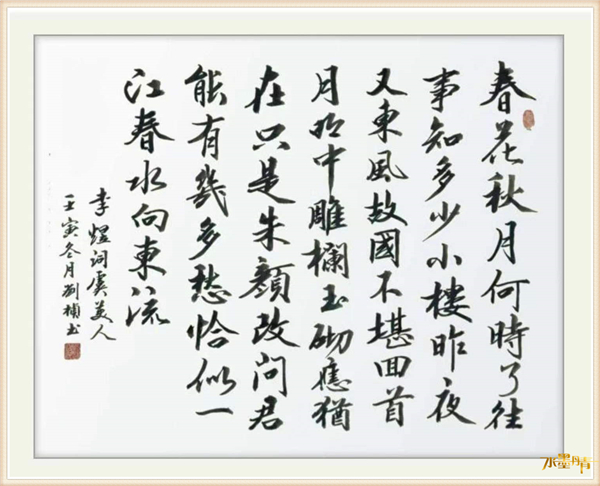 春花秋月何時了往
事知多少小樓昨夜
又東風故國不堪回首
月明中雕欄玉砌應猶
在只是朱顏改問君
能有幾多愁恰似一
江春水向東流
李煜词虞美人
壬寅冬月劉书
水墨丹青